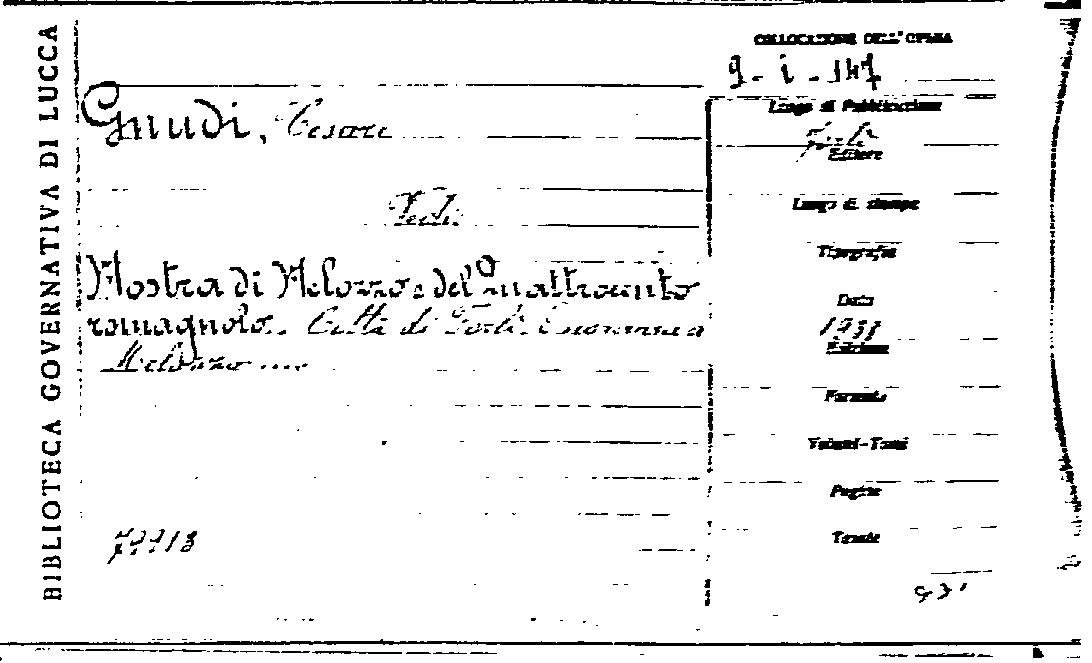 BIBLIOTECA GOVERNATIVA DI LUCCA
COLLOCAZIONE DELL'OPERA
9 - i - 147
Gnudi, Cesare
Forlì
Mostra di Melozzo e del Quattrocento
romagnolo. Città di Forlì. Onoranze a
Melozzo
Luogo di Pubblicazione
Forlì
Editore
Luogo di stampa
Tipografia
Data
Edizione
Formato
Volumi-Tomi
Pagine
Tavole